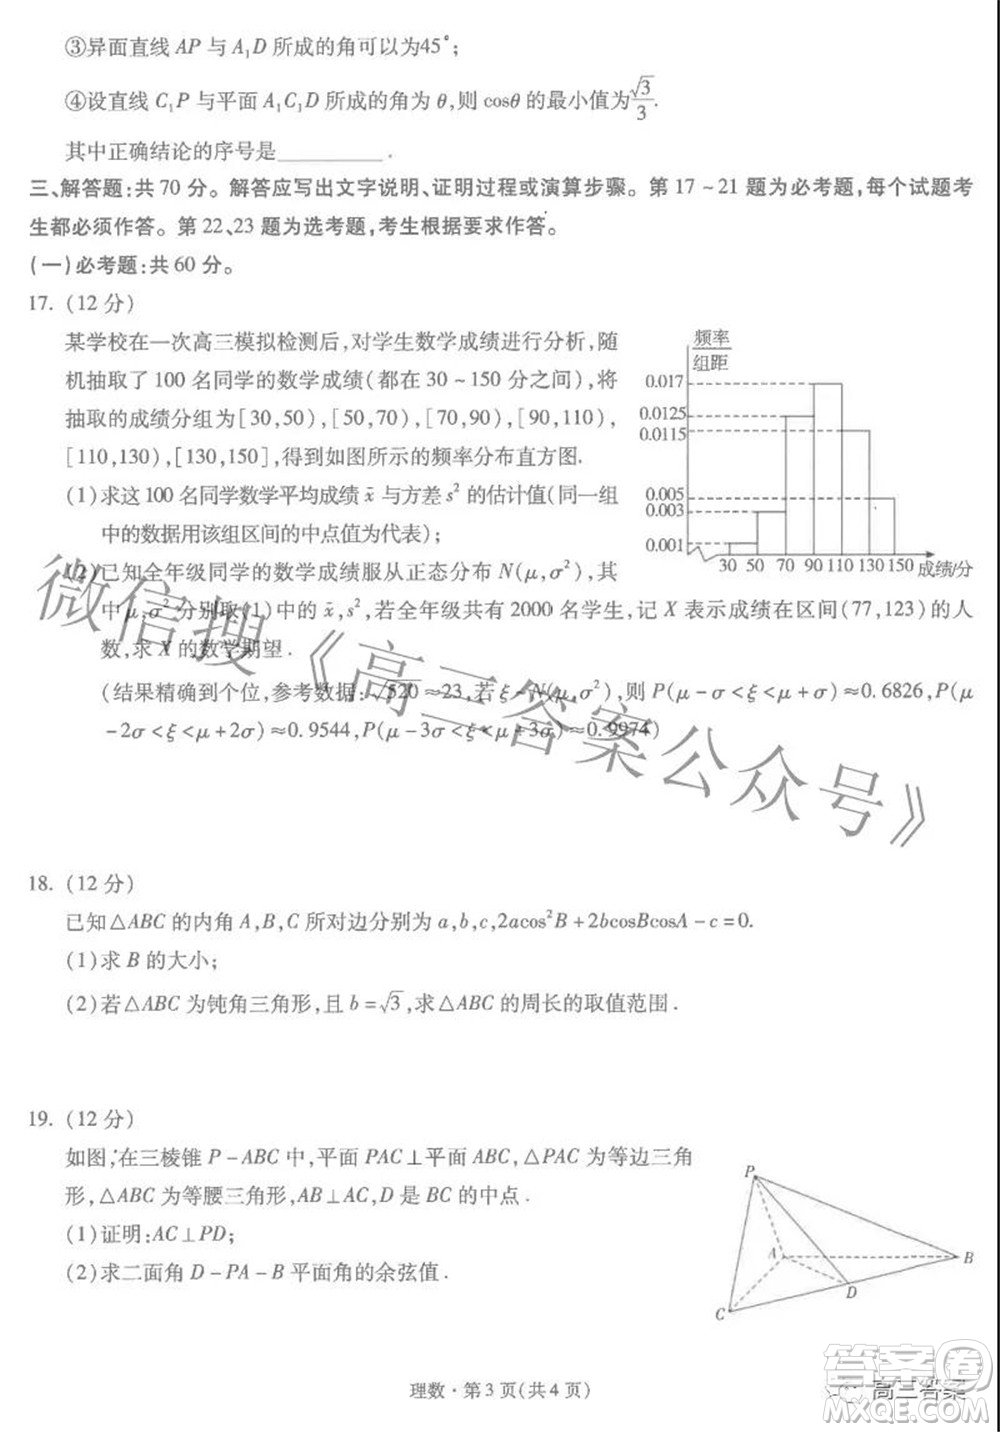 ③异面直线 AP 与 A₁D 所成的角可以为45°;
④设直线 C₁P 与平面 A₁C₁D 所成的角为 θ,则 cosθ 的最小值为√3/3.
其中正确结论的序号是________.
三、解答题:共 70 分。解答应写出文字说明、证明过程或演算步骤。第 17~21 题为必考题,每个试题考
生都必须作答。第 22、23 题为选考题,考生根据要求作答。
(一)必考题:共 60 分。
17. (12 分)
某学校在一次高三模拟检测后,对学生数学成绩进行分析,随
机抽取了 100 名同学的数学成绩(都在 30~150 分之间),将
抽取的成绩分组为[30,50),[50,70),[70,90),[90,110),
[110,130),[130,150],得到如图所示的频率分布直方图.
(1)求这 100 名同学数学平均成绩 x̄ 与方差 s² 的估计值(同一组
中的数据用该组区间的中点值为代表);
(2)已知全年级同学的数学成绩服从正态分布 N(μ,σ²),其
中 μ,σ² 分别取(1)中的 x̄,s²,若全年级共有 2000 名学生,记 X 表示成绩在区间(77,123)的人
数,求 X 的数学期望.
(结果精确到个位,参考数据:√520≈23,若 ξ~N(μ,σ²),则 P(μ-σ<ξ<μ+σ)≈0.6826,P(μ
-2σ<ξ<μ+2σ)≈0.9544,P(μ-3σ<ξ<μ+3σ)≈0.9974)
频率
组距
0.017
0.0125
0.0115
0.005
0.003
0.001
30 50 70 90 110 130 150 成绩/分
18. (12 分)
已知△ABC 的内角 A,B,C 所对边分别为 a,b,c,2acos²B+2bcosBcosA-c=0.
(1)求 B 的大小;
(2)若△ABC 为钝角三角形,且 b=√3,求△ABC 的周长的取值范围.
19. (12 分)
如图,在三棱锥 P-ABC 中,平面 PAC⊥平面 ABC,△PAC 为等边三角
形,△ABC 为等腰三角形,AB⊥AC,D 是 BC 的中点.
(1)证明:AC⊥PD;
(2)求二面角 D-PA-B 平面角的余弦值.
P
A
B
D
C
理数·第 3 页(共 4 页)
微信搜《高三答案公众号》
答案圈
高三答案
MXQE.COM